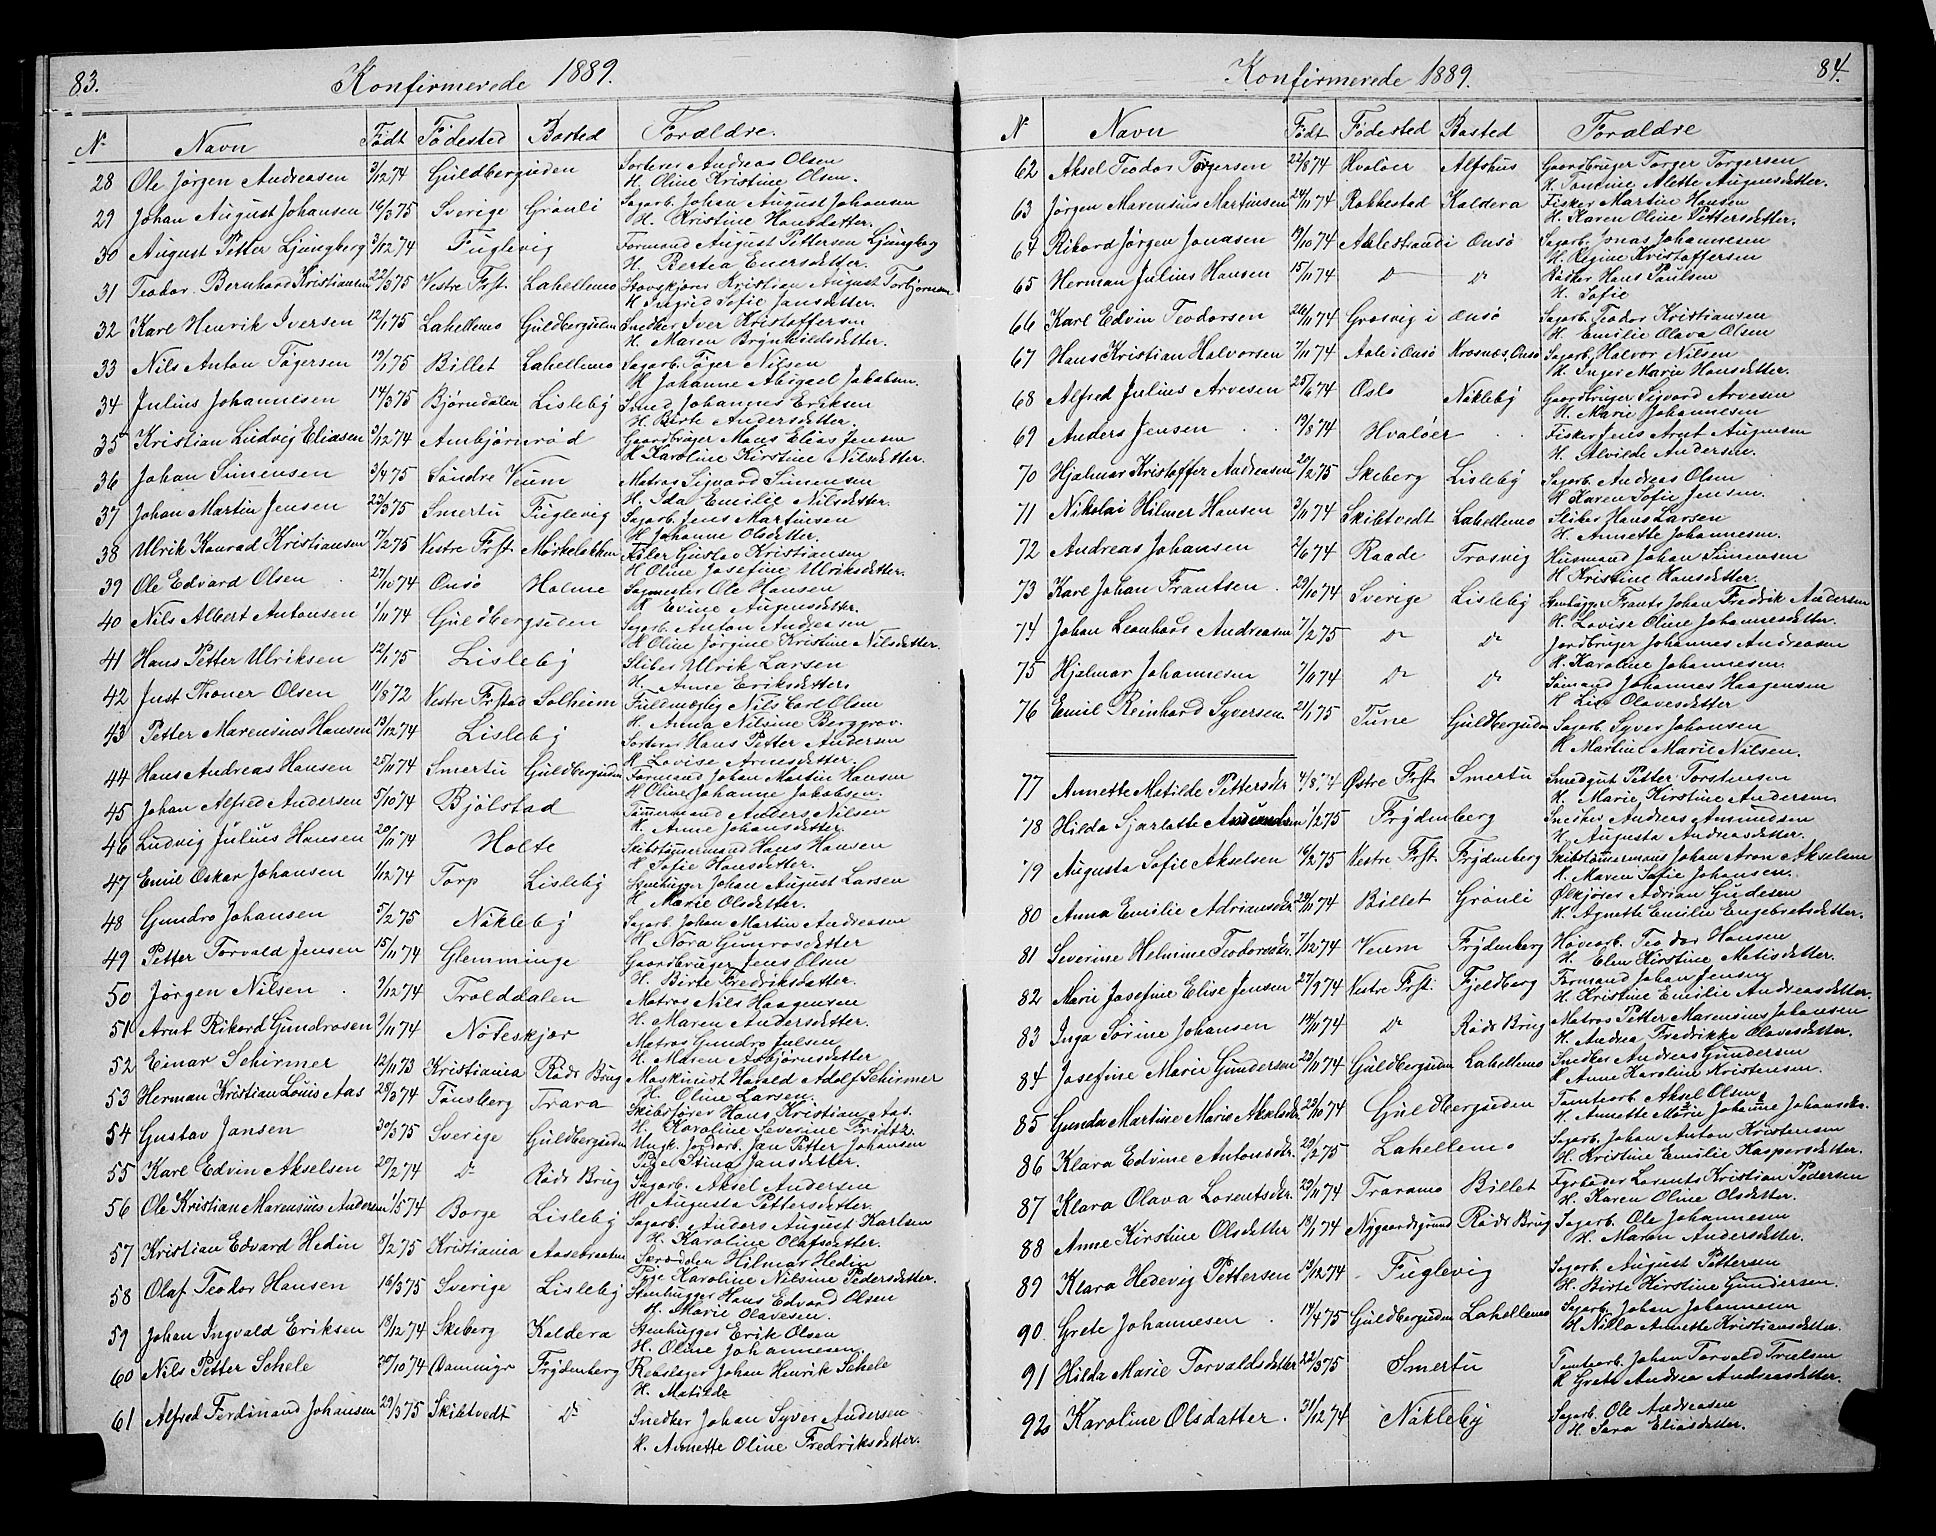 83.
Konfirmerede 1889.
N. Navn Født Fødested Bosted Forældre.
28 Ole Jørgen Andreasen 3/12 74 Guldbergsiden Sorterer Andreas Olsen
H. Oline Kristine Olsen.
29 Johan August Johansen 16/3 75 Sverige Grønli Sagarb. Johan August Johansen
H. Kristine Hansdatter.
30 August Petter Ljungberg 3/12 74 Fuglevig Formand August Pettersen Ljungberg
H. Bertea Enersdatter.
31 Teodor Bernhard Kristiansen 22/3 75 Vestre Frst. Lahellemo Kristian August Torbjørnsen
H. Ingrid Sofie Jansdatter.
32 Karl Henrik Iversen 12/1 75 Lahellemo Guldbergsiden Snedker Iver Kristoffersen
H. Maren Brynhildsdatter.
33 Nils Anton Tøgersen 19/1 75 Billet Lahellemo Sagarb. Tøger Nilsen
H. Johanne Abigael Jakobsen.
34 Julius Johannesen 14/3 75 Bjørndalen Lisleby Smed Johannes Eriksen
H. Berte Andersdatter.
35 Kristian Ludvig Eliasen 3/12 74 Ambjørnrød Gaardbruger Hans Elias Jensen
H. Karoline Kirstine Nilsdatter.
36 Johan Simensen 3/4 75 Søndre Veum Matros Sigvard Simensen
H. Ida Emilie Nilsdatter.
37 Johan Martin Jensen 22/3 75 Smertu Fuglevig Sagarb. Jens Martinsen
H. Johanne Olsdatter.
38 Ulrik Konrad Kristiansen 17/2 75 Vestre Frst. Gustav Kristiansen
H. Oline Josefine Ulriksdatter.
39 Ole Edvard Olsen 27/10 74 Onsø Holme Sagmester Ole Hansen
H. Evine Augensdatter.
40 Nils Albert Antonsen 1/11 74 Guldbergsiden Sagarb. Anton Andreasen
H. Oline Jørgine Kristine Nilsdatter.
41 Hans Petter Ulriksen 12/1 75 Lisleby Sliber Ulrik Larsen
H. Anne Eriksdatter.
42 Just Thoner Olsen 11/8 72 Vestre Frstad Solheim Fuldmægtig Nils Carl Olsen
H. Anna Nilsine Berggrav.
43 Petter Marensius Hansen 13/12 74 Lisleby Sorterer Hans Petter Andersen
H. Lovise Arnesdatter.
44 Hans Andreas Hansen 25/11 74 Smertu Guldbergsiden Formand Johan Martin Hansen
H. Oline Johanne Jakobsen.
45 Johan Alfred Andersen 5/10 74 Bjølstad Tømmermand Anders Nilsen
H. Anne Johansdatter.
46 Ludvig Julius Hansen 20/11 74 Holte Skibstømermand Hans Hansen
H. Sofie Hansdatter.
47 Emil Oskar Johansen 1/12 74 Torp Lisleby Stenhugger Johan August Larsen
H. Marie Olsdatter.
48 Gundro Johansen 5/2 75 Nøkleby Sagarb. Johan Martin Andreasen
H. Nora Gunrosdatter
49 Petter Torvald Jensen 15/11 74 Glemminge Gaardbruger Jens Olsen
H. Birte Fredriksdatter.
50 Jørgen Nilsen 2/12 74 Trolddalen Matros Nils Haagensen
H. Maren Andersdatter.
51 Arnt Rikard Gundrosen 9/11 74 Nøteskjær Matros Gundro Julsen
H. Maren Asbjørnsdatter
52 Einar Schirmer 12/11 73 Kristiania Røds Brug Maskinist Harald Adolf Schirmer
H. Oline Larsen.
53 Herman Kristian Louis Aas 28/3 74 Tønsberg Trara Skibsfører Hans Kristian Aas.
H. Karoline Severine Fridtz.
54 Gustav Jansen 30/3 75 Sverige Guldbergsiden Ungk. Jordarb. Jan Petter Johansen
Pige Stina Jansdatter.
55 Karl Edvin Akselsen 20/2 74 Do Røds Brug Sagarb. Aksel Andersen
H. Augusta Pettersdatter.
56 Ole Kristian Marensius Andersen 1/5 74 Borge Lisleby Sagarb. Anders August Karlsen
H. Karoline Olafsdatter.
57 Kristian Edvard Hedin 8/2 75 Kristiania Aasebraaten Skrædder Hilmar Hedin
Pige Karoline Nilsine Pedersdatter.
58 Olaf Teodor Hansen 16/3 75 Sverige Lisleby Stenhugger Hans Edvard Olsen
H. Marie Olavesen.
59 Johan Ingvald Eriksen 13/12 74 Skeberg Kaldera Stenhugger Erik Olsen
H. Oline Johannesen
60 Nils Petter Schele 20/10 74 Frydenberg Rebslager Johan Henrik Schele
H. Matilde
61 Alfred Ferdinand Johansen 29/3 75 Skibtvedt Do Snedker Johan Syver Andersen
H. Annette Oline Fredriksdatter.
84.
Konfirmerede 1889.
N Navn Født Fødested Bosted Forældre
62 Aksel Teodor Torgersen 22/8 74 Hvaløer Alfshus Gaardbruger Torger Torgersen
H. Tomine Alette Augensdatter.
63 Jørgen Marensius Martinsen 24/11 74 Rakkestad Kaldera Fisker Martin Hansen
H. Karen Oline Pettersdatter.
64 Rikard Jørgen Jonasen 19/10 74 Ålestrand i Onsø Sagarb. Jonas Johannesen
H. Regine Kristoffersen
65 Herman Julius Hansen 15/11 74 Do Do Bødker Hans Paulsen
H. Sofie
66 Karl Edvin Teodorsen 26/11 74 Grosvig i Onsø Sagarb. Teodor Kristiansen
H. Emilie Olava Olsen
67 Hans Kristian Halvorsen 7/11 74 Aale i Onsø Krosnæs, Onsø Sagarb. Halvor Nilsen
H. Inger Marie Hansdatter.
68 Alfred Julius Arvesen 25/6 74 Oslo Nøkleby Gaardbruger Sigvard Arvesen
H. Marie Johannesen
69 Anders Jensen 19/8 74 Hvaløer Fisker Jens Arnt Augensen
H. Alvilde Andersen.
70 Hjalmar Kristoffer Andreasen 20/2 75 Skeberg Lisleby Sagarb. Andreas Olsen
H. Karen Sofie Jensen.
71 Nikolai Hilmer Hansen 3/11 74 Skibtvedt Lahellemo Sliber Hans Larsen
H. Annette Johannesen.
72 Andreas Johansen 2/6 74 Raade Trosvig Husmand Johan Simensen
H. Kristine Hansdatter.
73 Karl Johan Frantsen 29/10 74 Sverige Lisleby Stenhugger Frants Johan Fredrik Andersen
H. Lovise Oline Johannesdatter.
74 Johan Leonhard Andreasen 7/2 75 Do Do Jordbruger Johannes Andreasen
H. Karoline Johannesen.
75 Hjalmar Johannesen 7/10 74 Do Do Sømand Johannes Haagensen
H. Lise Olavesdatter
76 Emil Reinhard Syversen 21/1 75 Tune Guldbergsiden Sagarb. Syver Johansen
H. Martine Marie Nilsen.
77 Annette Matilde Pettersdtr. 4/8 74 Østre Frst. Smertu Smedgut Petter Torstensen
H. Marie Kirstine Andersen
78 Hilda Sjarlotte 1/2 75 Frydenberg Snedker Andreas Amundsen
H. Augusta Andreasdatter.
79 Augusta Sofie Akselsen 16/2 75 Vestre Frst. Frydenberg Skibstømermand Johan Aron Akselsen
H. Maren Sofie Johansen.
80 Anna Emilie Adriansdtr. 29/11 74 Billet Grønli Ølkjører Adrian Gudesen
H. Agnette Emilie Engebretsdatter.
81 Severine Helmine Teodorsdtr. 7/12 74 Veum Frydenberg Havearb. Teodor Hansen
H. Elen Kirstine Matisdatter.
82 Marie Josefine Elise Jensen 27/9 74 Vestre Frst. Fjeldberg Formand Johan Jensen
H. Kristine Emilie Andreasdatter.
83 Inga Sørine Johansen 14/11 74 Do Røds Brug Matros Petter Marensius Johansen
H. Andrea Fredrikke Olavesdatter.
84 Josefine Marie Gundersen 23/10 74 Guldbergsiden Lahellemo Snedker Andreas Gundersen
H. Anne Karoline Kristensen.
85 Gunda Martine Marie Akselsdtr 22/10 74 Guldbergsiden Tomtearb. Aksel Olsen
H. Annette Marie Johanne Johansdtr.
86 Klara Edvine Antonsdtr. 20/2 75 Lahellemo Sagarb. Johan Anton Kristensen
H. Kristine Emilie Kaspersdatter.
87 Klara Olava Lorentsdtr. 29/11 74 Traramo Billet Fyrbøder Lorents Kristian Pedersen
H. Karen Oline Olsdatter.
88 Anne Kirstine Olsdatter 13/1 74 Nygaardsgrund Røds Brug Sagarb. Ole Johannesen
H. Maren Andersdatter.
89 Klara Hedevig Pettersen 13/12 74 Fuglevig Sagarb. August Pettersen
H. Birte Kirstine Gundersen.
90. Grete Johannesen 14/4 75 Guldbergsiden Lahellemo Sagarb. Johan Johannesen
H. Nikla Annette Kristiansdatter.
91 Hilda Marie Torvaldsdatter 22/3 75 Smertu Tomtearb. Johan Torvald Troelsen
H. Grete Andrea Andreasdatter.
92 Karoline Olsdatter. 31/12 74 Nøkleby Sagarb. Ole Andreasen
H. Sara Eliasdatter.